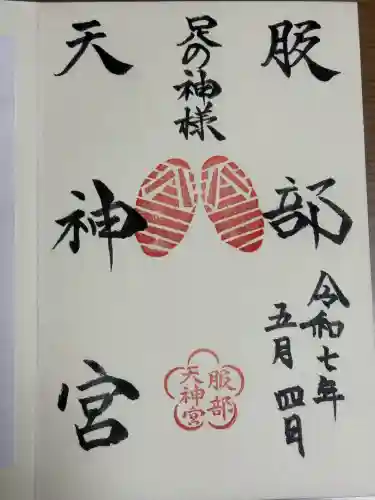 服部
令和七年
五月四日
足の神様
服部
天神宮
天神宮